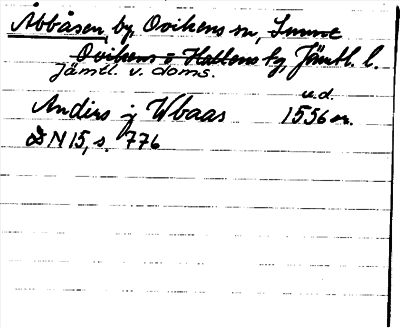 Åbbåsen, by, Ovikens sn, Sunne
Ovikens o Hallens tg, Jämtl. l.
Jämtl. v. doms.
u.d.
Anders j Wbaas 1556 sn.
N 15, s. 776